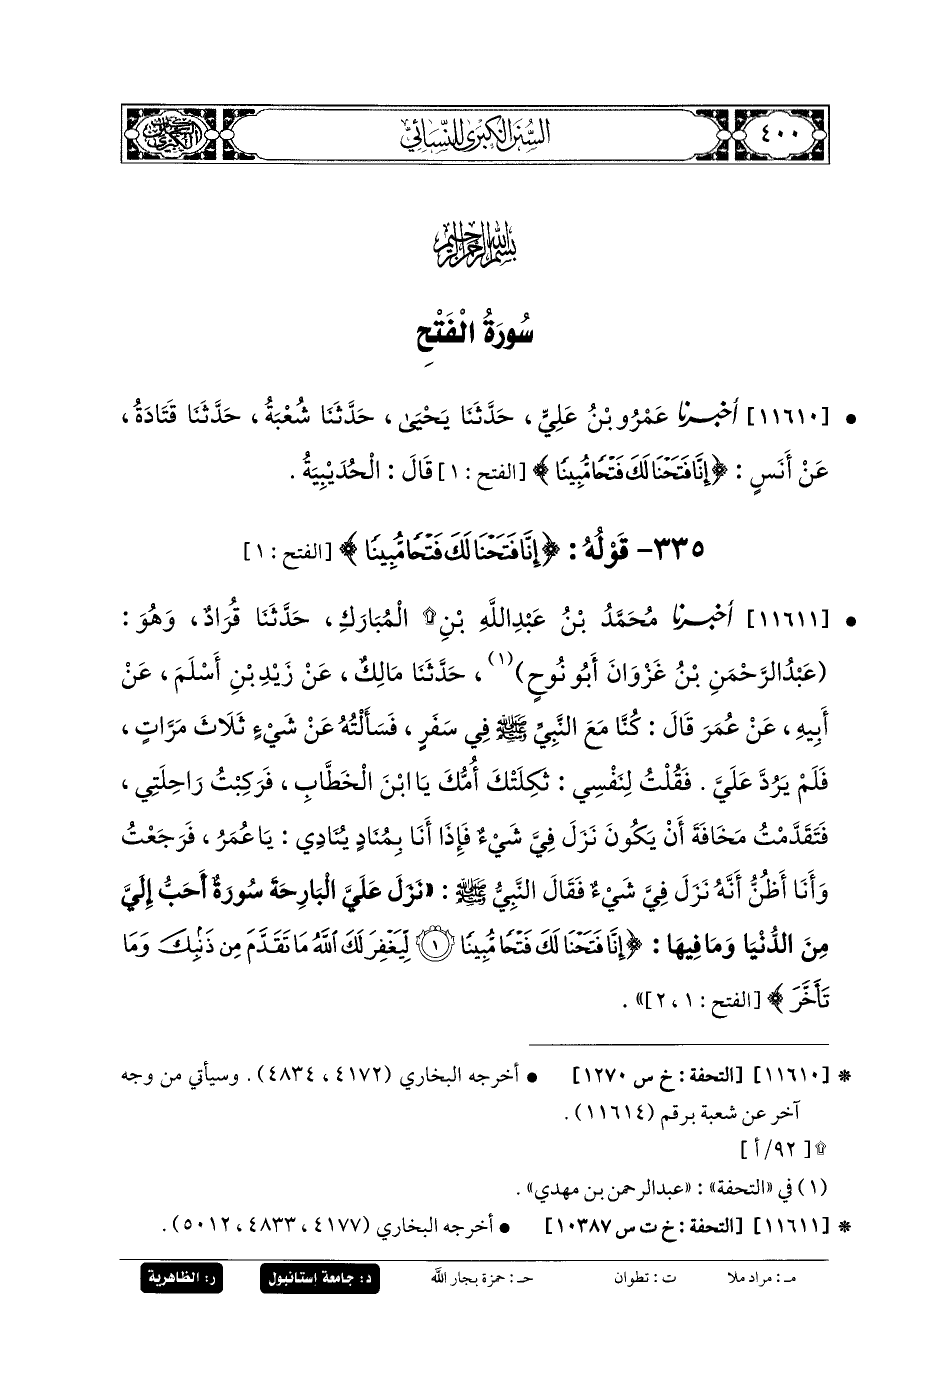 ٤٠٠
السُّنَنُ الْكِبْرَى لِلنَّسَائِيِّ
بسم الله الرحمن الرحيم
سُورَةُ الْفَتْحِ
• [١١٦١٠] أَخْبَرَنَا عَمْرُو بْنُ عَلِيٍّ ، حَدَّثَنَا يَحْيَىٰ ، حَدَّثَنَا شُعْبَةُ ، حَدَّثَنَا قَتَادَةُ ،
عَنْ أَنَسٍ : ﴿إِنَّا فَتَحْنَا لَكَ فَتْحًا مُّبِينًا﴾ [الفتح : ١] قَالَ : الْحُدَيْبِيَةُ .
٣٣٥- قَوْلُهُ : ﴿إِنَّا فَتَحْنَا لَكَ فَتْحًا مُّبِينًا﴾ [الفتح : ١]
• [١١٦١١] أَخْبَرَنَا مُحَمَّدُ بْنُ عَبْدِاللَّهِ بْنِ۩ الْمُبَارَكِ ، حَدَّثَنَا قُرَادٌ ، وَهُوَ :
(عَبْدُالرَّحْمَنِ بْنُ غَزْوَانَ أَبُو نُوحٍ)(١) ، حَدَّثَنَا مَالِكٌ ، عَنْ زَيْدِ بْنِ أَسْلَمَ ، عَنْ
أَبِيهِ ، عَنْ عُمَرَ قَالَ : كُنَّا مَعَ النَّبِيِّ ﷺ فِي سَفَرٍ ، فَسَأَلْتُهُ عَنْ شَيْءٍ ثَلَاثَ مَرَّاتٍ ،
فَلَمْ يَرُدَّ عَلَيَّ . فَقُلْتُ لِنَفْسِي : ثَكِلَتْكَ أُمُّكَ يَا ابْنَ الْخَطَّابِ ، فَرَكِبْتُ رَاحِلَتِي ،
فَتَقَدَّمْتُ مَخَافَةَ أَنْ يَكُونَ نَزَلَ فِيَّ شَيْءٌ فَإِذَا أَنَا بِمُنَادٍ يُنَادِي : يَا عُمَرُ ، فَرَجَعْتُ
وَأَنَا أَظُنُّ أَنَّهُ نَزَلَ فِيَّ شَيْءٌ فَقَالَ النَّبِيُّ ﷺ : «نَزَلَ عَلَيَّ الْبَارِحَةَ سُورَةٌ أَحَبُّ إِلَيَّ
مِنَ الدُّنْيَا وَمَا فِيهَا : ﴿إِنَّا فَتَحْنَا لَكَ فَتْحًا مُّبِينًا ۝١ لِّيَغْفِرَ لَكَ ٱللَّهُ مَا تَقَدَّمَ مِن ذَنۢبِكَ وَمَا
تَأَخَّرَ﴾ [الفتح : ١ ، ٢]» .
* [١١٦١٠] [التحفة : خ س ١٢٧٠] • أخرجه البخاري (٤١٧٢ ، ٤٨٣٤) . وسيأتي من وجه
آخر عن شعبة برقم (١١٦١٤) .
۩ [٩٢/أ]
(١) في «التحفة» : «عبدالرحمن بن مهدي» .
* [١١٦١١] [التحفة : خ ت س ١٠٣٨٧] • أخرجه البخاري (٤١٧٧ ، ٤٨٣٣ ، ٥٠١٢) .
مـ : مراد ملا ت : تطوان حـ : حمزة بجار الله د : جامعة إستانبول ر : الظاهرية